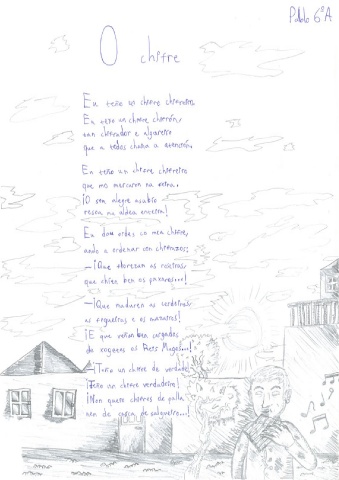 Pablo 6ºA
O chifre
Eu teño un chifre
Eu teño un chifre chifrón,
tan chifrador e
que a todos chama a atención.
Eu teño un chifre chifreiro
que me mercaron na feira.
¡O seu alegre asubío
resoa na aldea enteira!
Eu dou ordes co meu chifre,
ando a ordenar con
—¡Que as roseiras
que chíen ben os paxaros...!
—¡Que maduren as cerdeiras
as figueiras e os
¡E que veñan ben cargados
de xoguetes os Reis Magos...!
—¡Teño un chifre de verdade,
teño un chifre verdadeiro!
¡Non quero chifres de palla
nin de casca de salgueiro...!